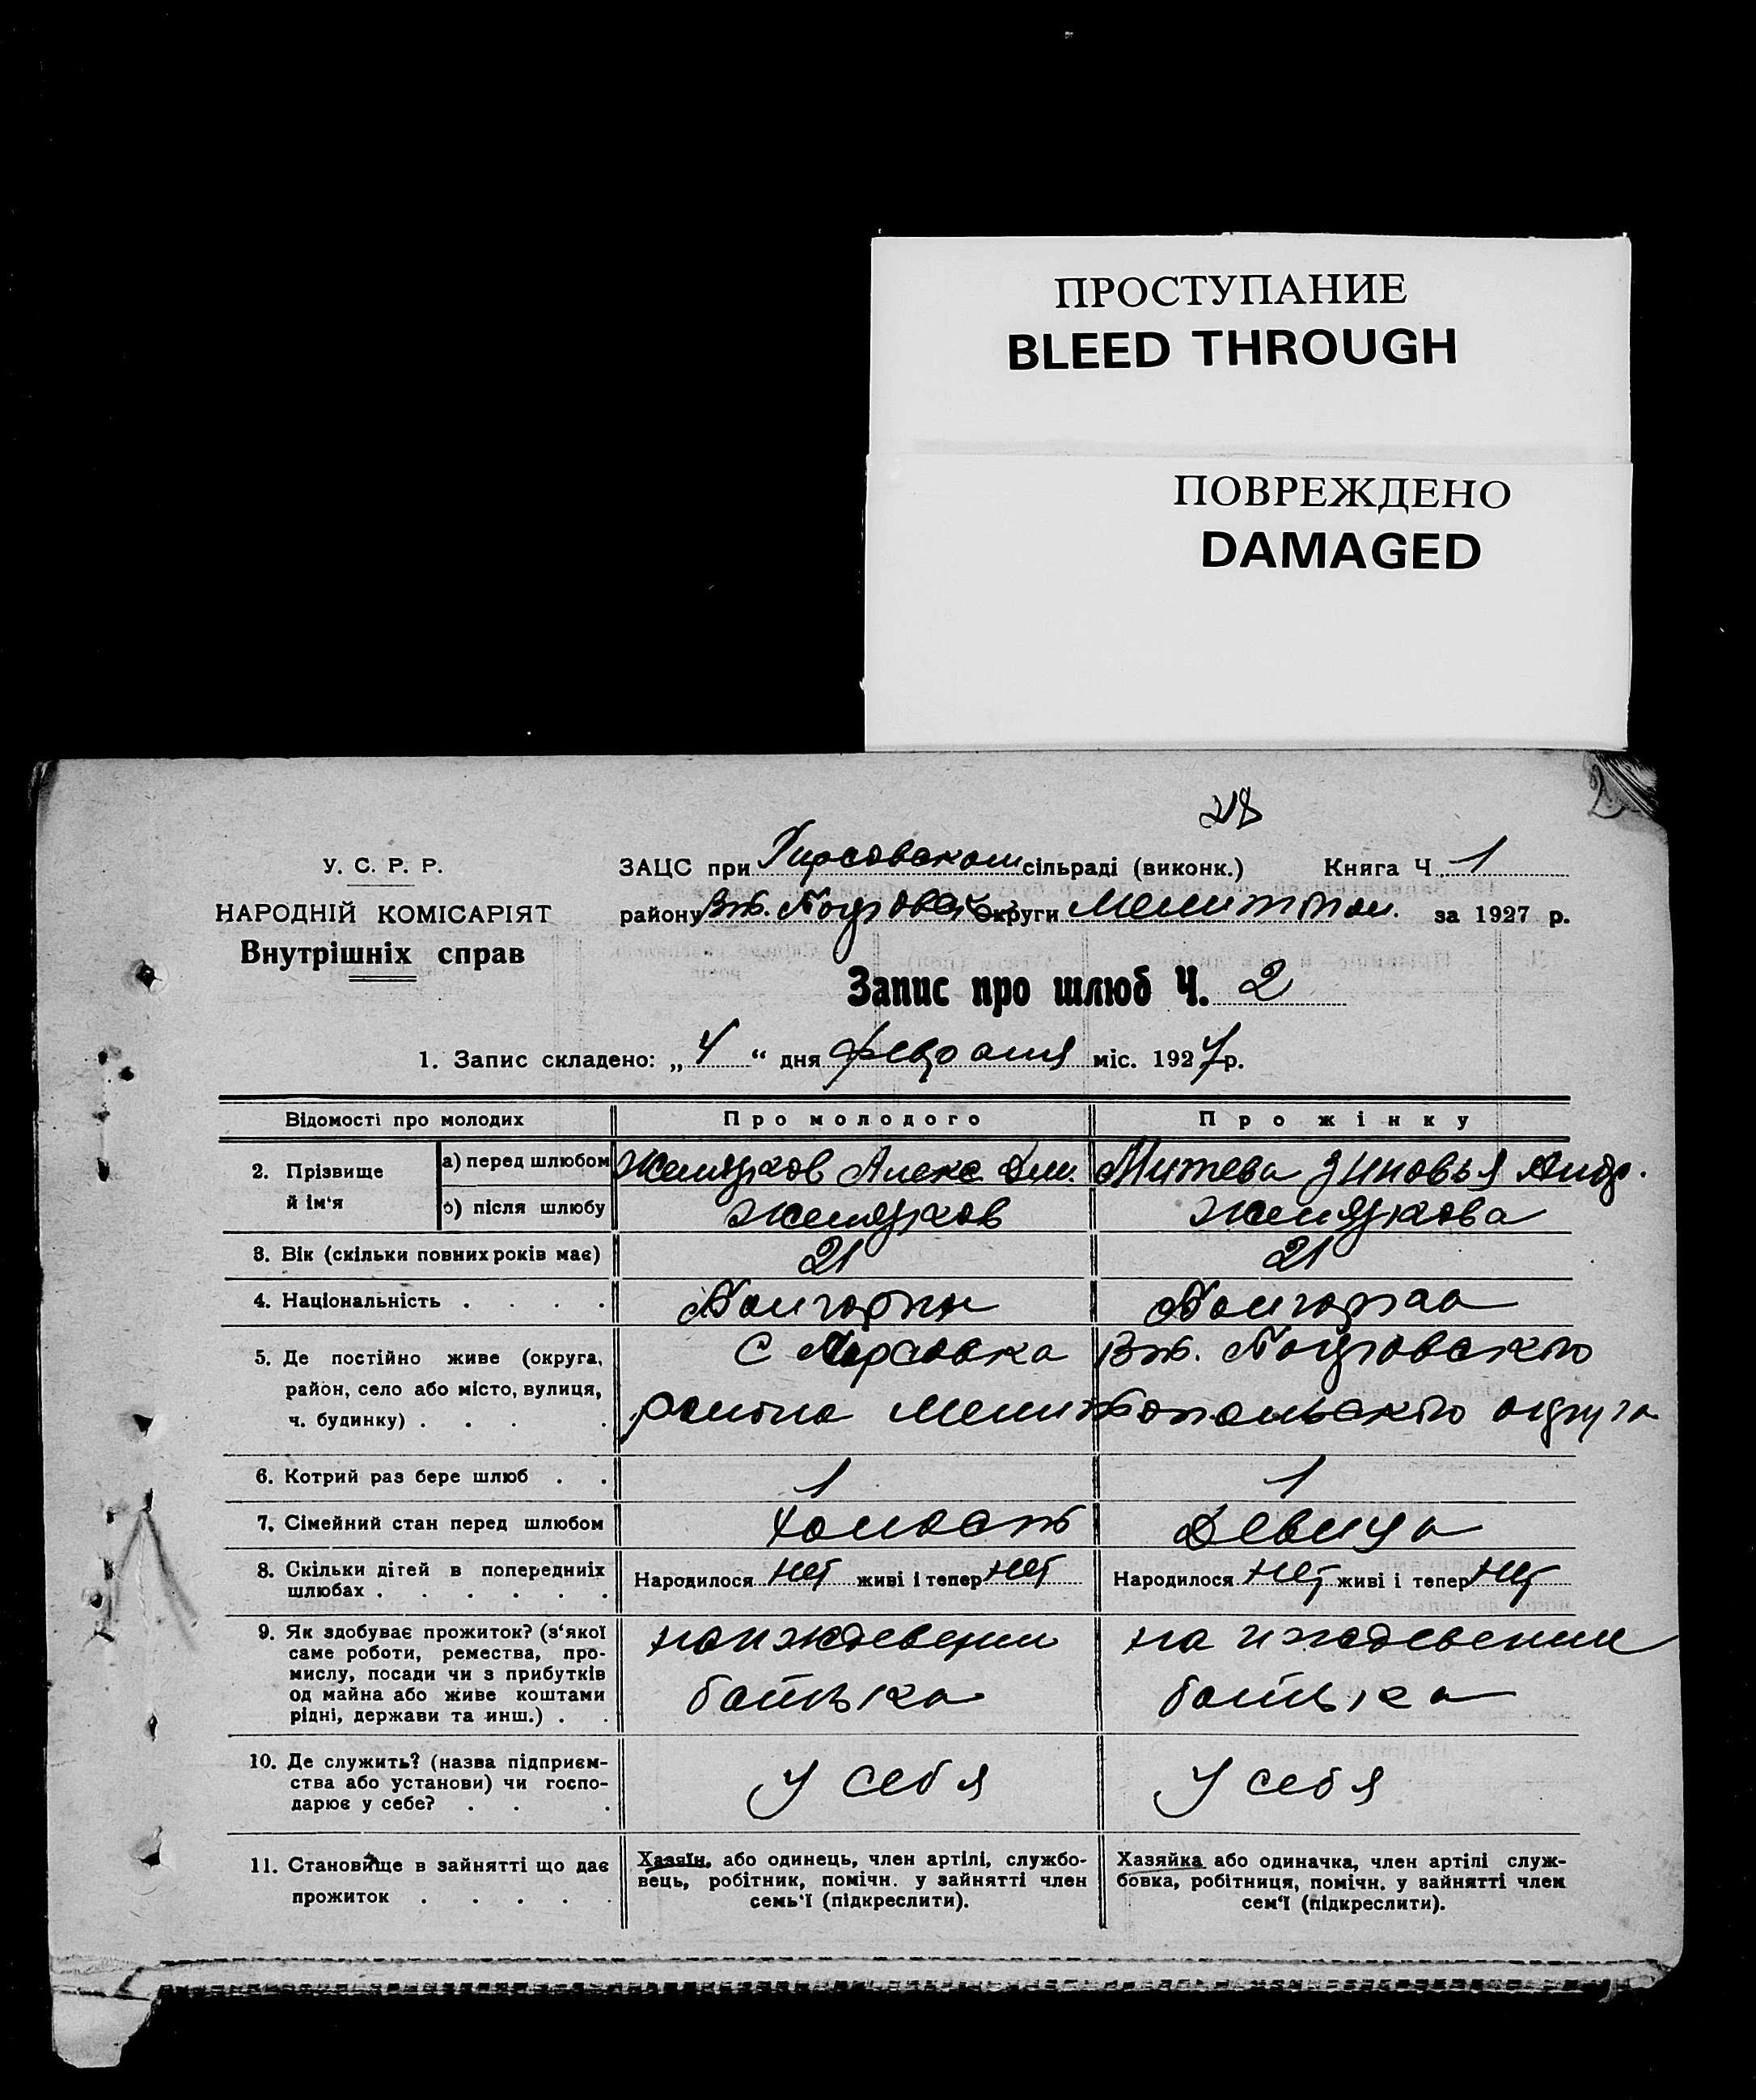 ПРОСТУПАНИЕ
BLEED THROUGH
ПОВРЕЖДЕНО
DAMAGED
218
У. С. Р. Р.
НАРОДНІЙ КОМІСАРІЯТ
Внутрішніх справ
ЗАЦС при Гирсовском сільраді (виконк.) Книга Ч. 1
району округи Мелитопол. за 1927 р.
Запис про шлюб Ч. 2
1. Запис складено: „ 4 “ дня февраля міс. 1927 р.
Відомості про молодих Про молодого Про жінку
2. Прізвище й ім'я
а) перед шлюбом Желязков Алекс. Дм. Митева Зиновья Андр.
б) після шлюбу Желязков Желязкова
3. Вік (скільки повних років має) 21 21
4. Національність . . . . Болгарин Болгарка
5. Де постійно живе (округа, С Гирсовка
район, село або місто, вулиця,
ч. будинку) . . . . района Мелитопольского округа
6. Котрий раз бере шлюб . . 1 1
7. Сімейний стан перед шлюбом Холост Девица
8. Скільки дітей в попередніх
шлюбах . . . . . . Народилося нет живі і тепер нет Народилося нет живі і тепер нет
9. Як здобуває прожиток? (з'якої
саме роботи, ремества, про-
мислу, посади чи з прибутків
од майна або живе коштами
рідні, держави та инш.) . .
на иждевении батька на иждевении батька
10. Де служить? (назва підприєм-
ства або установи) чи госпо-
дарює у себе? . . .
у себя у себя
11. Становище в зайнятті що дає
прожиток . . . . .
Хазяїн, або одинець, член артілі, службо-
вець, робітник, помічн. у зайнятті член
семь'ї (підкреслити).
Хазяйка або одиначка, член артілі служ-
бовка, робітниця, помічн. у зайнятті член
сем'ї (підкреслити).